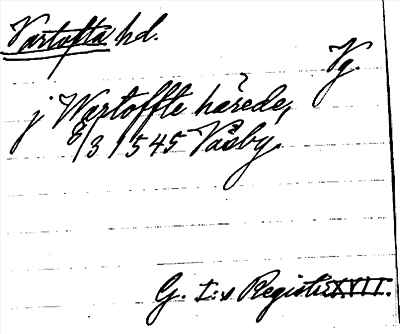 Vartofta hd.
Vg.
j Wartoffte härede,
8/3 1545 Väsby.
G. I:s Registr. XVII.